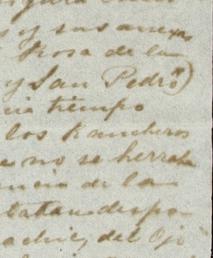 s y sus anexas
Rosa de la
y San Pedro)
tiempo
los Rancheros
e no se herraba
encia de la
despo
del Ojo